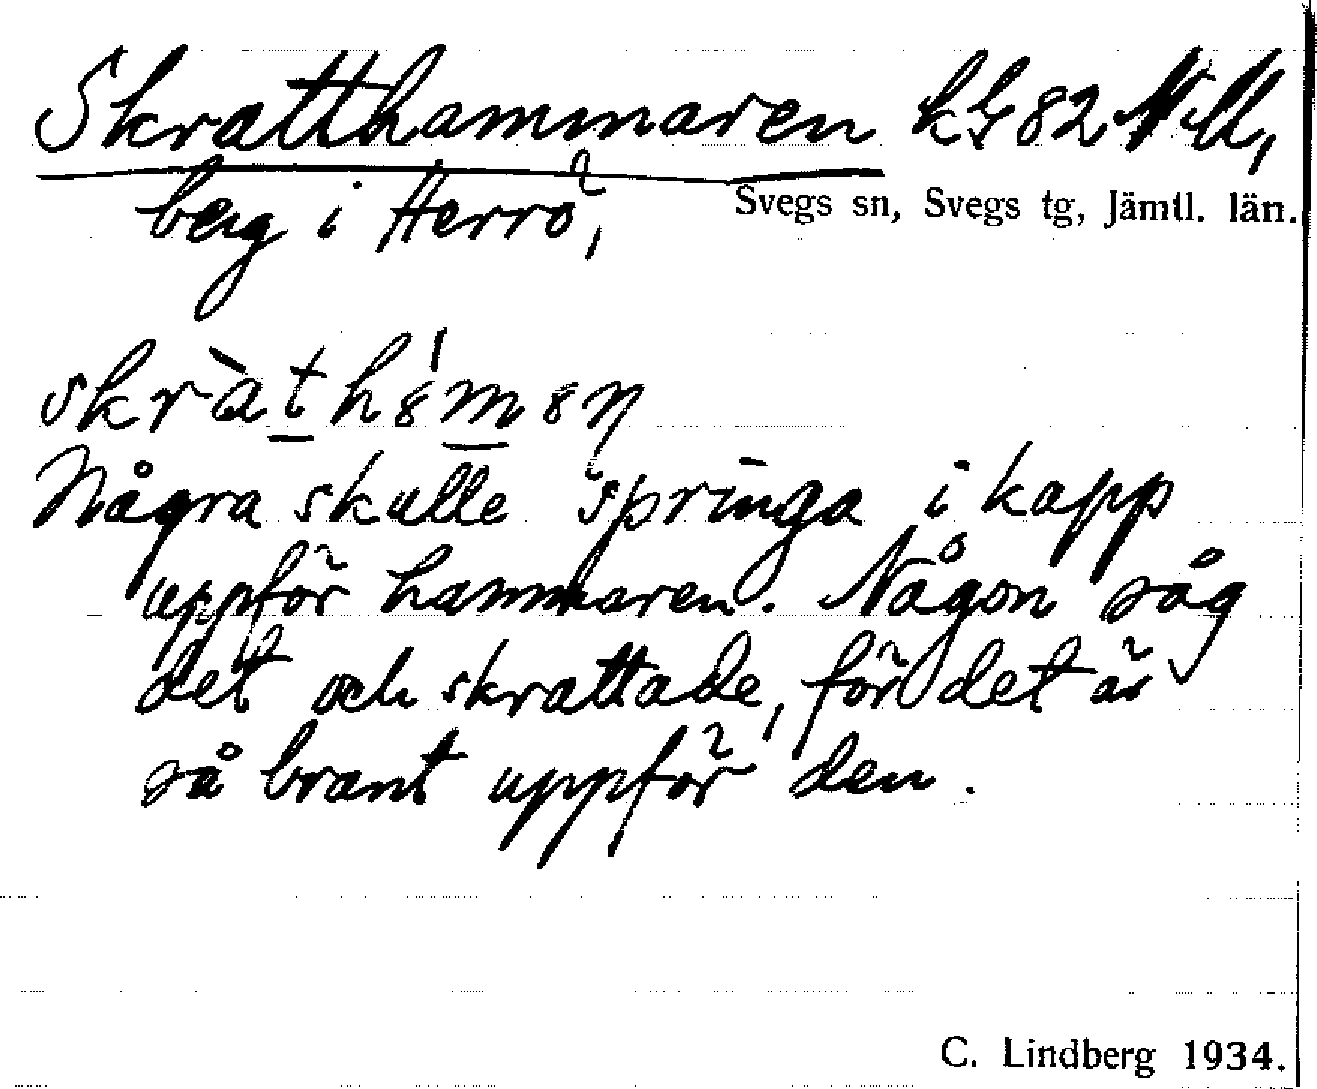 Skratthammaren
Svegs sn, Svegs tg, Jämtl. län.
berg i Herrö,
Några skulle springa i kapp
uppför hammaren. Någon såg
det och skrattade, för det är
så brant uppför den.
C. Lindberg 1934.